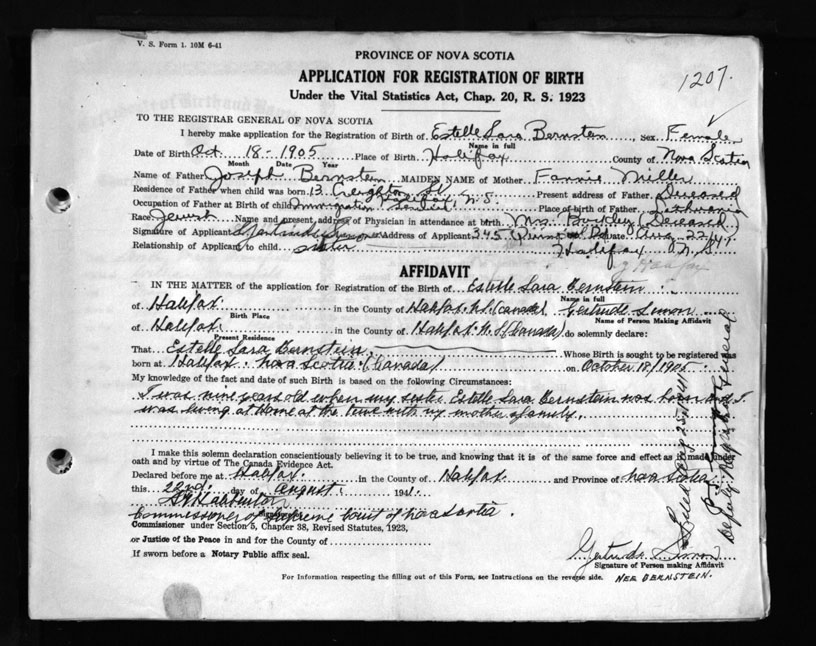 V. S. Form 1. 10M 6-41
PROVINCE OF NOVA SCOTIA
APPLICATION FOR REGISTRATION OF BIRTH
Under the Vital Statistics Act, Chap. 20, R. S. 1923
1207.
TO THE REGISTRAR GENERAL OF NOVA SCOTIA
I hereby make application for the Registration of Birth of Estelle Sara Bernstein, Sex Female
Name in full
Date of Birth Oct. 18 - 1905 Place of Birth Halifax County of Nova Scotia
Month Date Year
Name of Father Joseph Bernstein MAIDEN NAME of Mother Fannie Miller
Residence of Father when child was born 13 Creighton St Present address of Father Deceased
Halifax, N.S.
Occupation of Father at Birth of child Immigration Place of birth of Father Lithuania
Race Jewish Name and present address of Physician in attendance at birth Mrs. Buckley (Deceased)
Signature of Applicant Gertrude Simon Address of Applicant 345 Date Aug. 22/41
Relationship of Applicant to child sister Halifax N.S.
AFFIDAVIT
IN THE MATTER of the application for Registration of the Birth of Estelle Sara Bernstein
Name in full
of Halifax in the County of Halifax N.S. (Canada) Gertrude Simon
Birth Place Name of Person Making Affidavit
of Halifax in the County of Halifax N.S. (Canada) do solemnly declare:
Present Residence
That Estelle Sara Bernstein Whose Birth is sought to be registered was
born at Halifax Nova Scotia (Canada) on October 18/1905
My knowledge of the fact and date of such Birth is based on the following Circumstances:
I was nine years old when my sister Estelle Sara Bernstein was born and I
was living at home at the time with my mother & family.
I make this solemn declaration conscientiously believing it to be true, and knowing that it is of the same force and effect as if made under
oath and by virtue of The Canada Evidence Act.
Declared before me at Halifax in the County of Halifax and Province of Nova Scotia
this 22nd. day of August 1941.
Commissioner of Supreme Court of Nova Scotia
Commissioner under Section 5, Chapter 38, Revised Statutes, 1923,
or Justice of the Peace in and for the County of
If sworn before a Notary Public affix seal.
Gertrude Simon
Signature of Person making Affidavit
NEE BERNSTEIN.
For Information respecting the filling out of this Form, see Instructions on the reverse side.
Deputy Registrar General